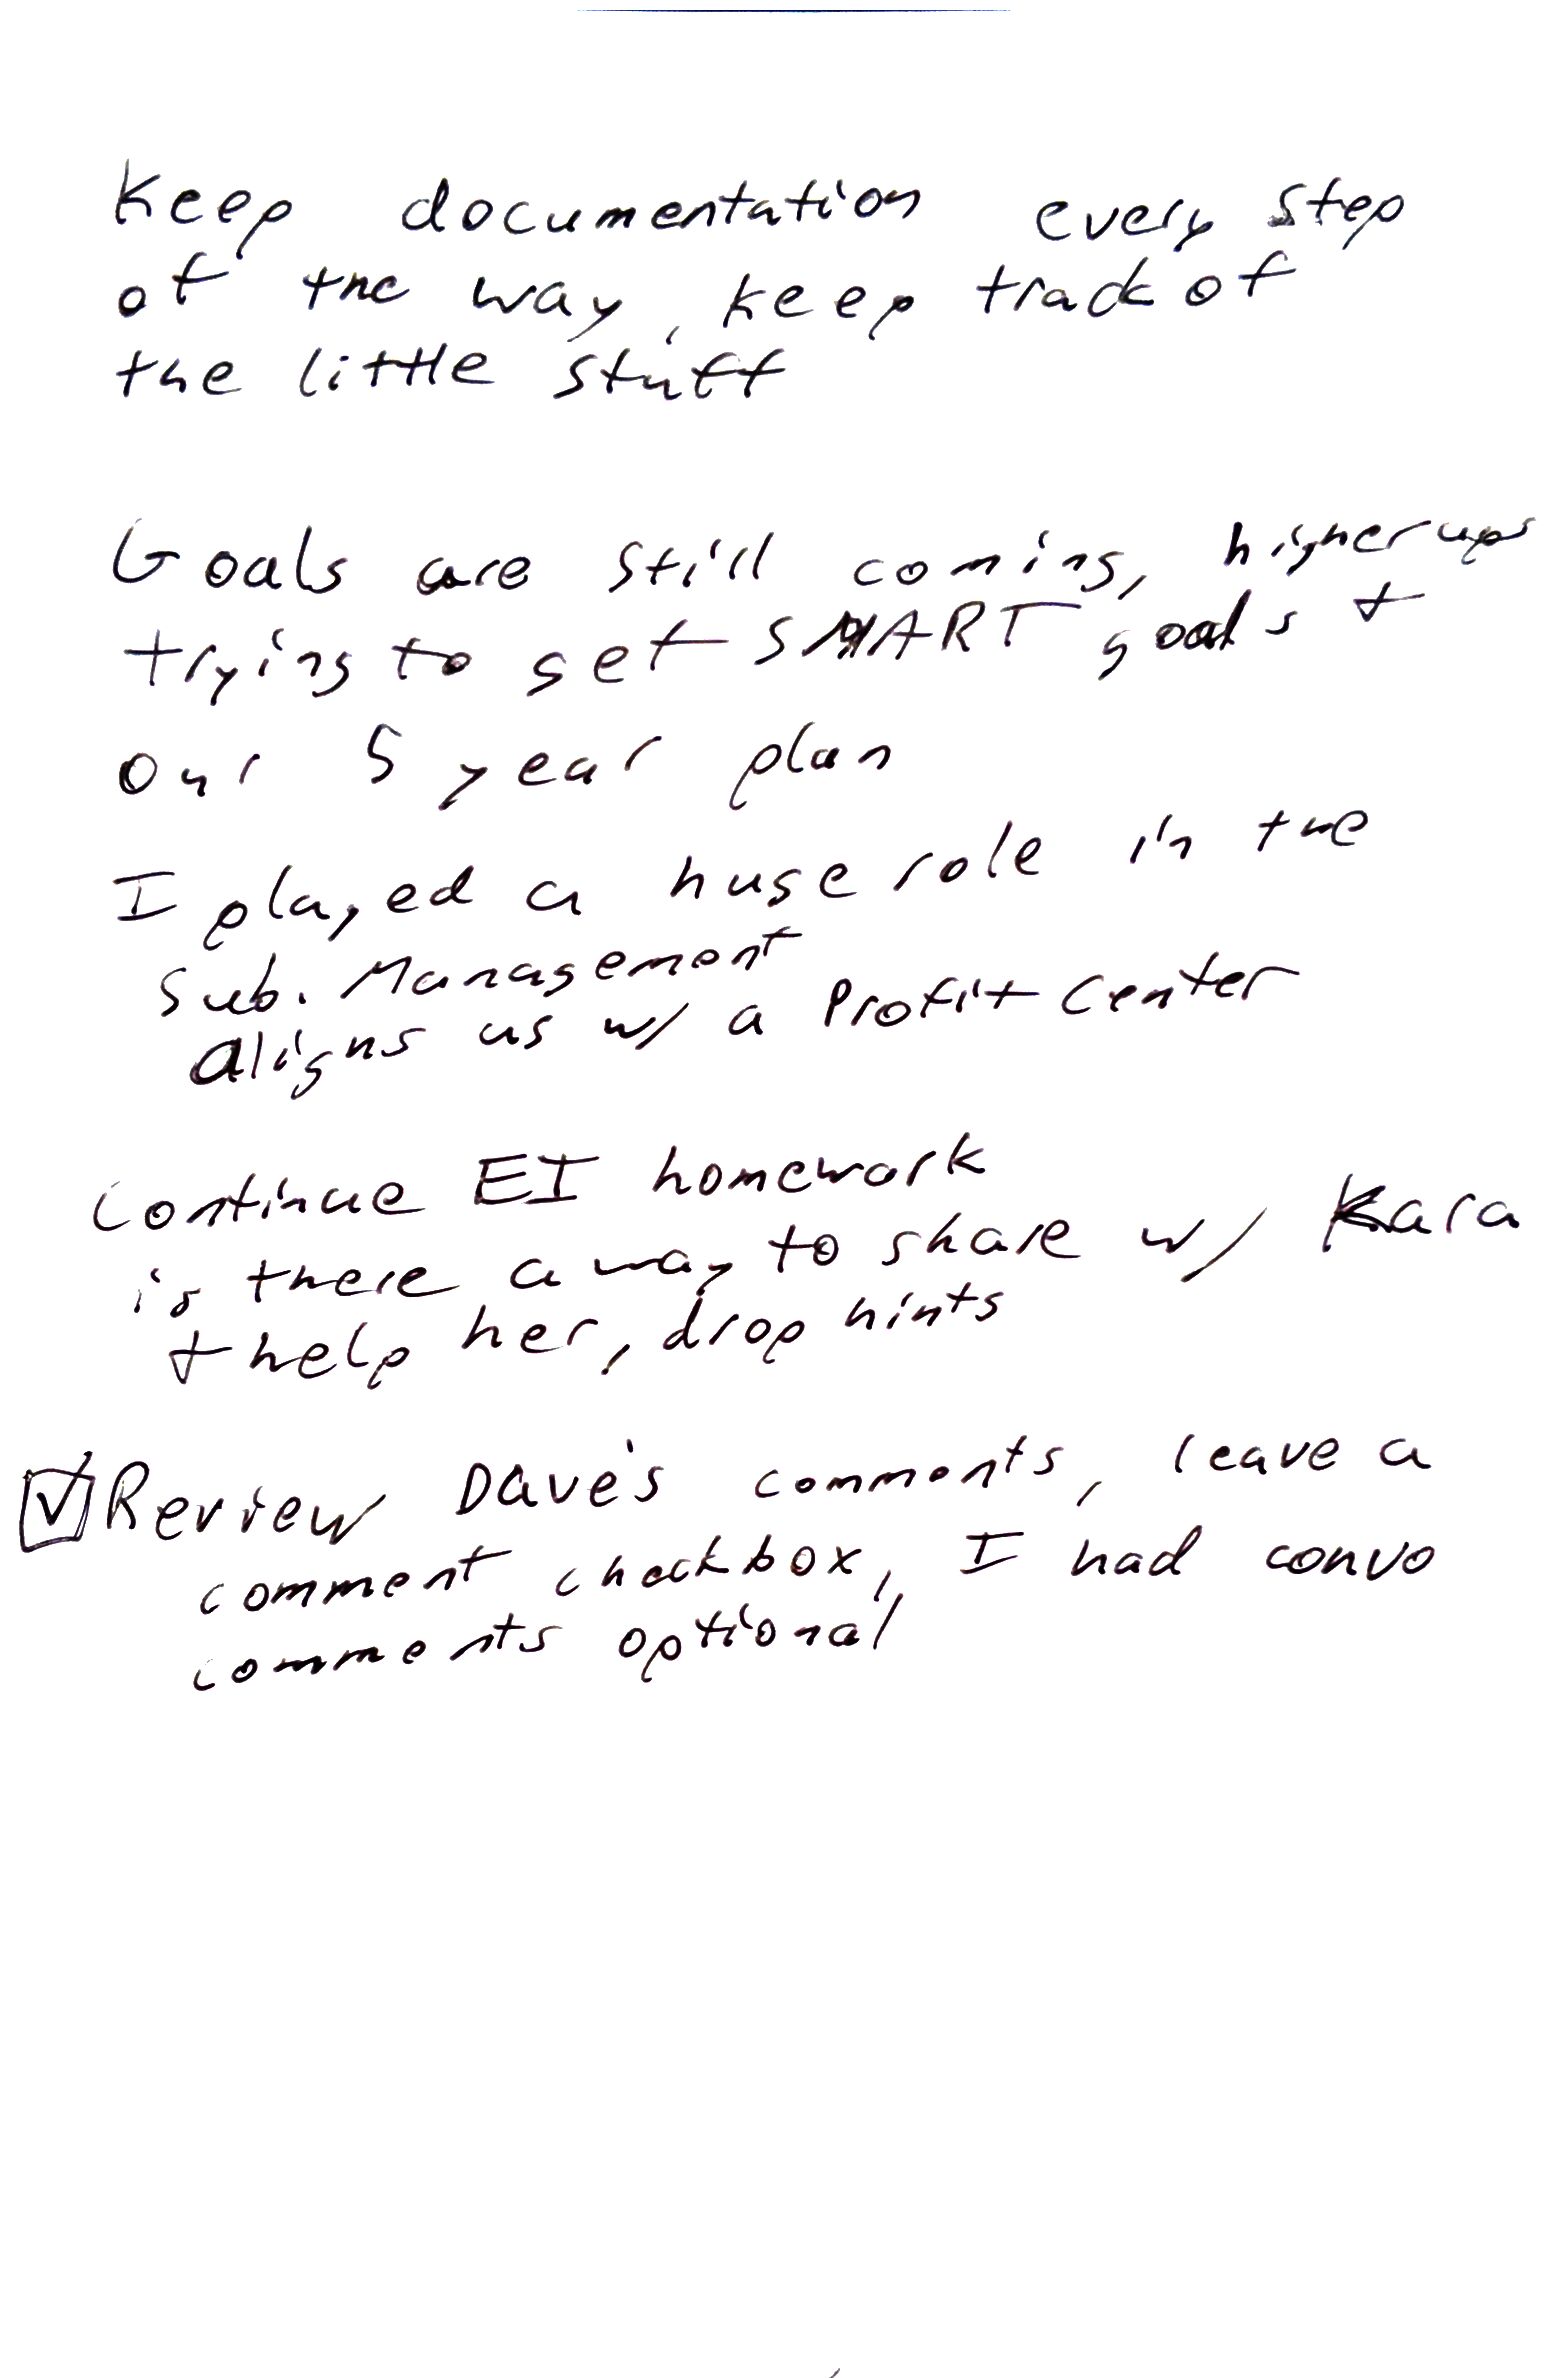 Keep documentation every step
of the way, keep track of
the little stuff
Goals are still coming, higher ups
trying to set SMART goals +
our 5 year plan
I played a huge role in the
Sub. Management
aligns us w/ a Profit Center
Continue EI homework
is there a way to share w/ Kara
+ help her, drop hints
☑ Review Dave's comments, leave a
comment checkbox, I had convo
comments optional